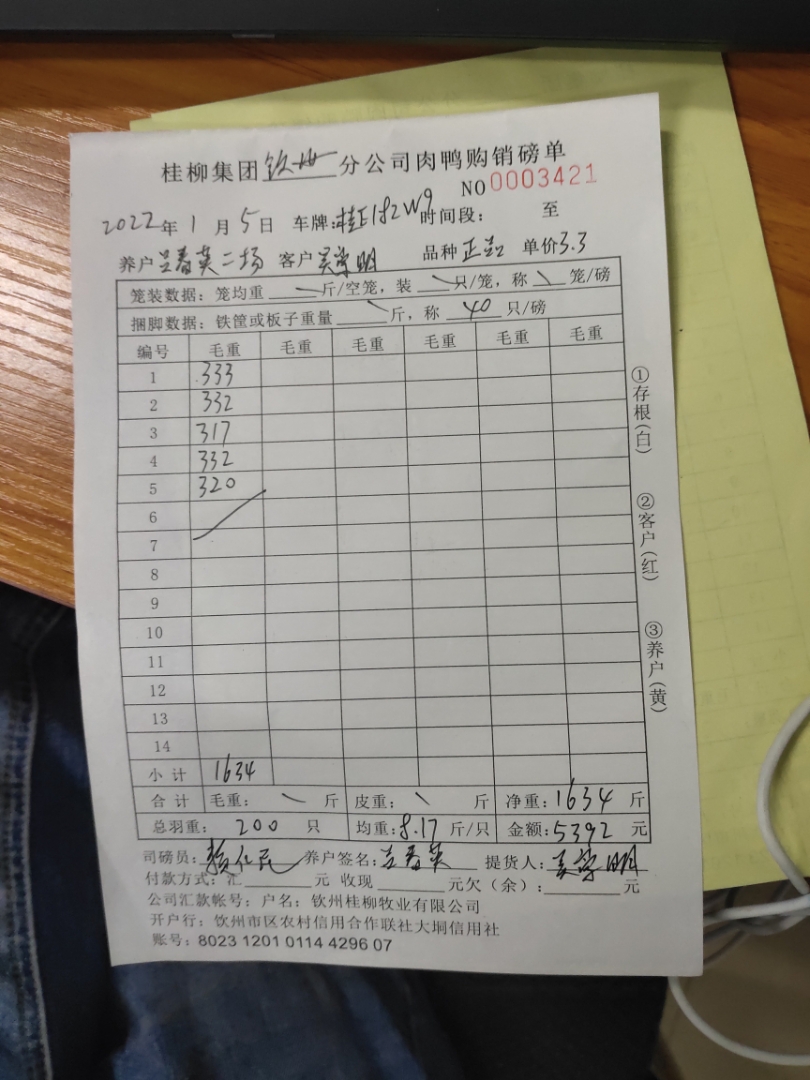 桂柳集团钦州分公司肉鸭购销磅单
NO 0003421
2022年1月5日 车牌:桂E182W9 时间段: 至
养户 兰春英二场 客户 吴学明 品种 单价3.3
笼装数据:笼均重 斤/空笼,装 只/笼,称 笼/磅
捆脚数据:铁筐或板子重量 斤,称 40 只/磅
编号 毛重 毛重 毛重 毛重 毛重 毛重
1 333
2 332
3 317
4 332
5 320
6
7
8
9
10
11
12
13
14
小计 1634
合计 毛重: 斤 皮重: 斤 净重:1634 斤
总羽重: 200 只 均重:8.17 斤/只 金额:5392 元
司磅员: 养户签名:兰春英 提货人:吴学明
付款方式:汇 元 收现 元欠(余): 元
公司汇款帐号:户名:钦州桂柳牧业有限公司
开户行:钦州市区农村信用合作联社大垌信用社
账号:8023 1201 0114 4296 07
①存根(白)
②客户(红)
③养户(黄)